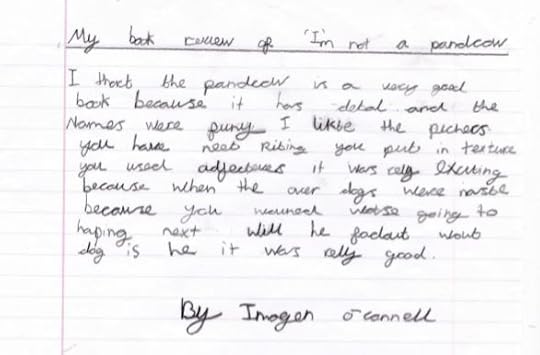 My book reveiw of 'I'm not a pandcow
I thock the pandcow is a very good
book because it has detal and the
Names were funy I likte the pichers
you have neet Riting you put in texture
you used adjectives it was rely Exciting
because when the over dogs were naste
because you wouned wotse going to
haping next Will he fadout wout
dog is he it was relly good.
By Imogen o'connell